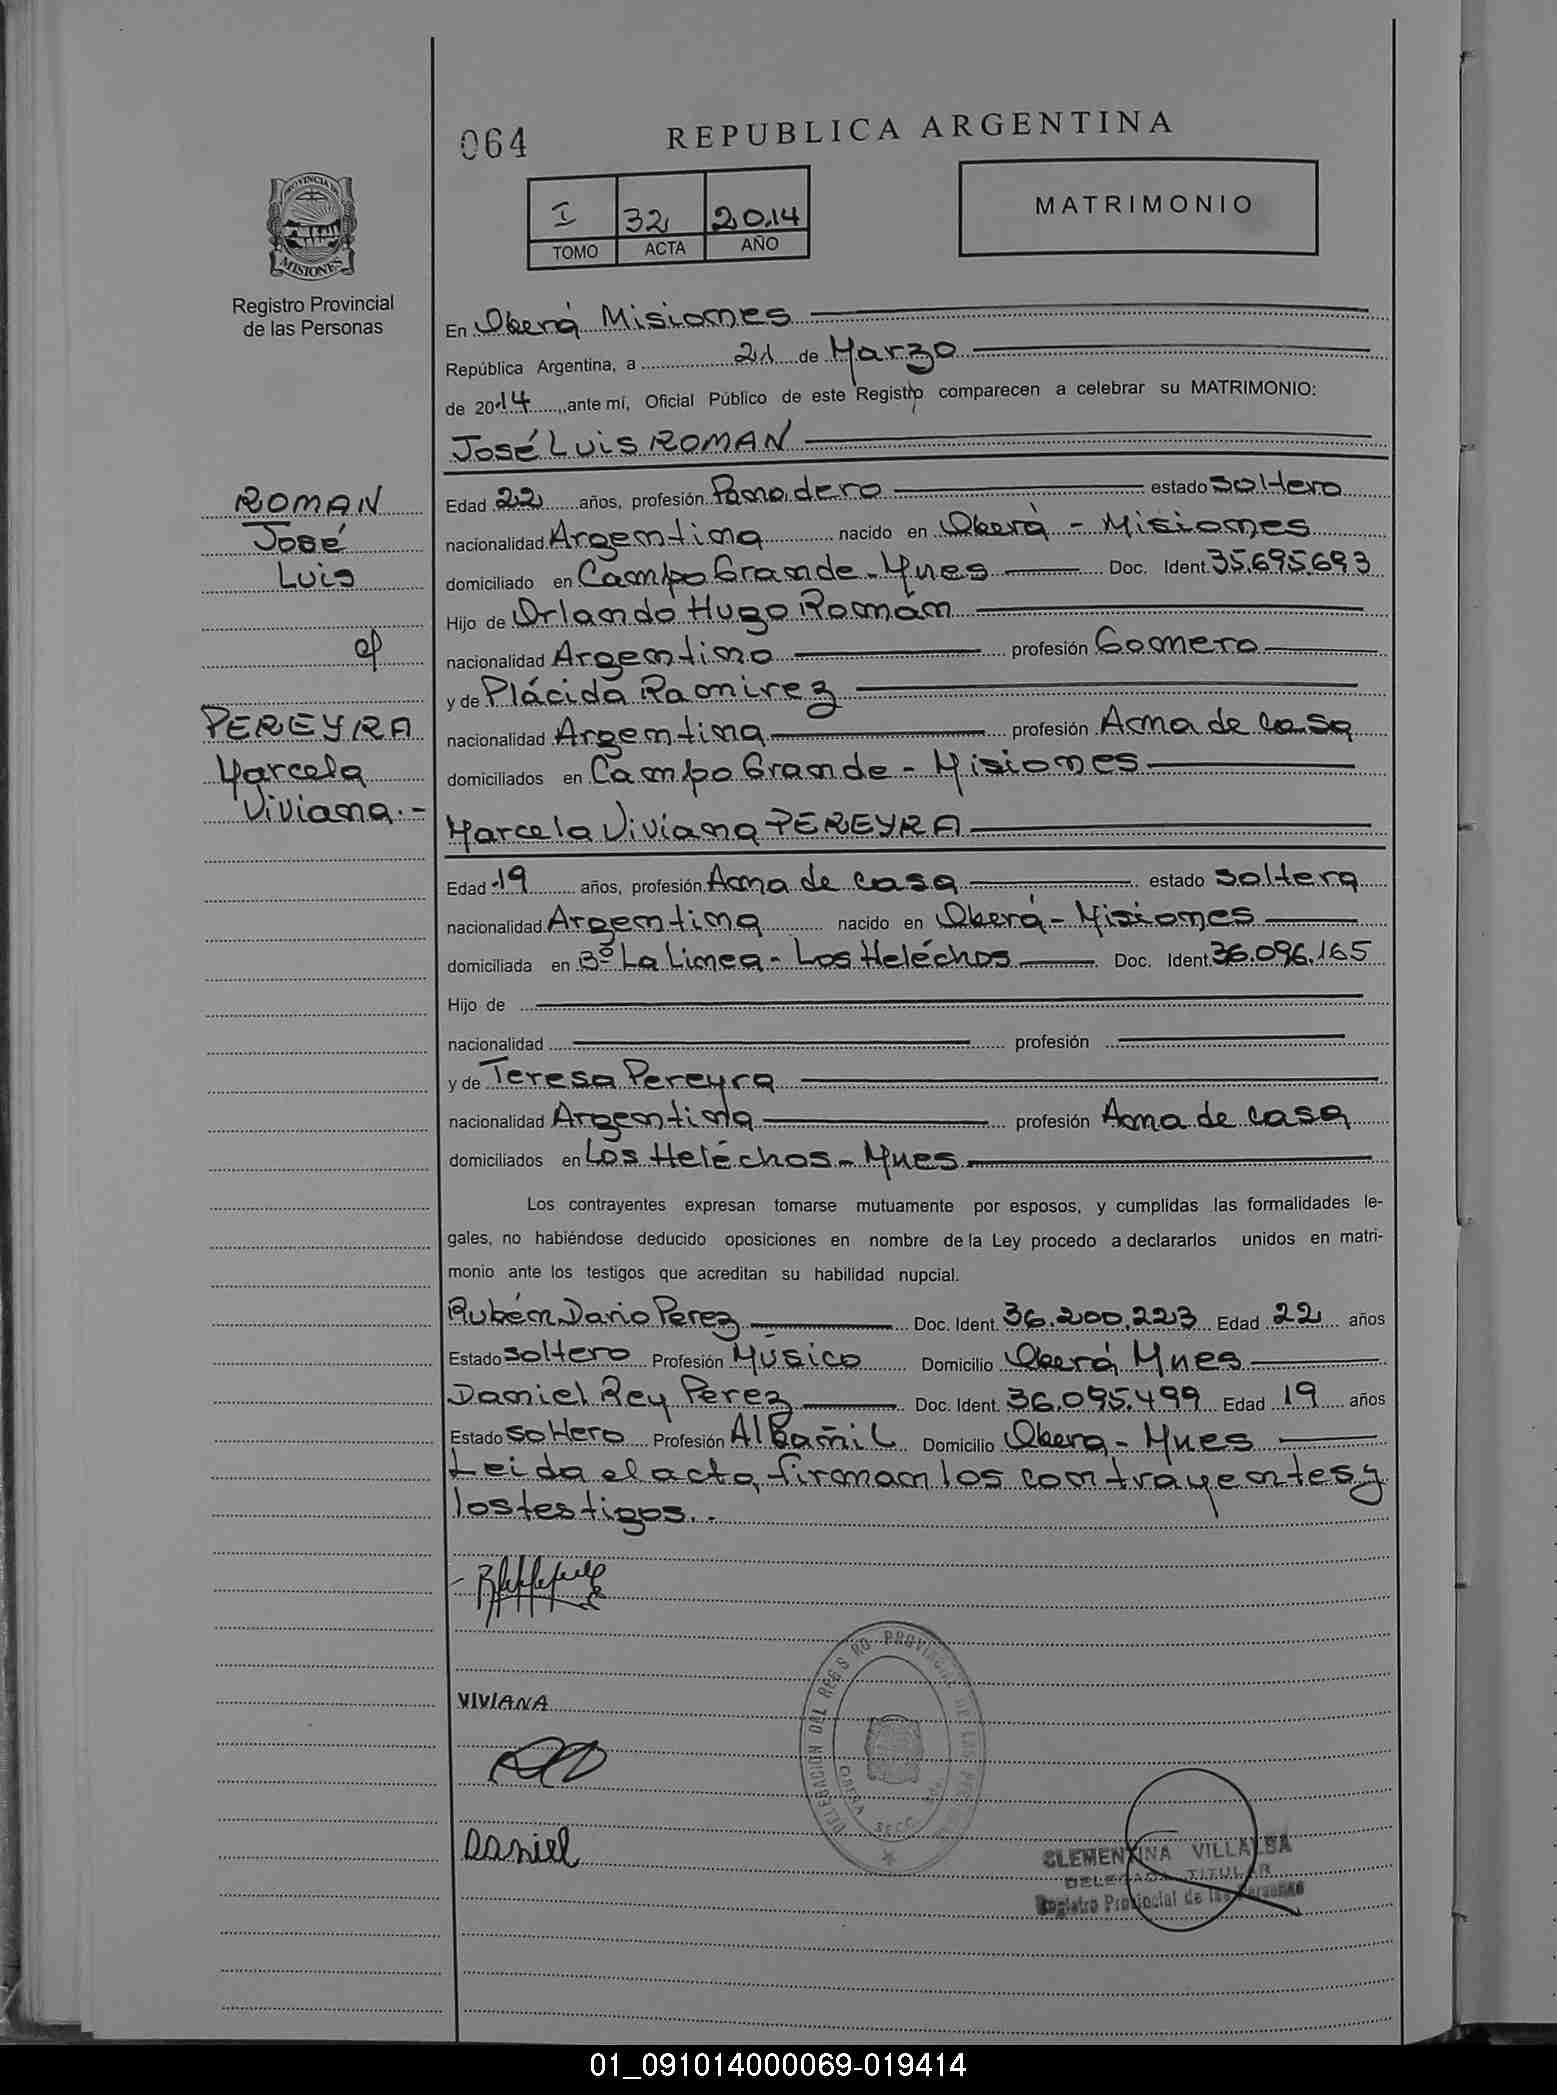 064
REPUBLICA ARGENTINA
PROVINCIA DE
MISIONES
Registro Provincial
de las Personas
I 32 2014
TOMO ACTA AÑO
MATRIMONIO
En Oberá Misiones
República Argentina, a 21 de Marzo
de 2014, ante mí, Oficial Público de este Registro comparecen a celebrar su MATRIMONIO:
José Luis ROMAN
ROMAN
José
Luis
c/
PEREYRA
Marcela
Viviana.-
Edad 22 años, profesión Panadero estado soltero
nacionalidad Argentina nacido en Oberá - Misiones
domiciliado en Campo Grande - Mnes Doc. Ident. 35.695.693
Hijo de Orlando Hugo Román
nacionalidad Argentino profesión Gomero
y de Plácida Ramirez
nacionalidad Argentina profesión Ama de casa
domiciliados en Campo Grande - Misiones
Marcela Viviana PEREYRA
Edad 19 años, profesión Ama de casa estado soltera
nacionalidad Argentina nacido en Oberá - Misiones
domiciliada en Bº La Linea - Los Heléchos Doc. Ident. 36.096.165
Hijo de
nacionalidad profesión
y de Teresa Pereyra
nacionalidad Argentina profesión Ama de casa
domiciliados en Los Heléchos - Mnes
Los contrayentes expresan tomarse mutuamente por esposos, y cumplidas las formalidades le-
gales, no habiéndose deducido oposiciones en nombre de la Ley procedo a declararlos unidos en matri-
monio ante los testigos que acreditan su habilidad nupcial.
Rubén Dario Perez Doc. Ident. 36.200.223 Edad 22 años
Estado soltero Profesión Músico Domicilio Oberá Mnes
Daniel Rey Perez Doc. Ident. 36.095.499 Edad 19 años
Estado soltero Profesión Albañil Domicilio Obera - Mnes
Leida el acta, firman los contrayentes y
los testigos..-
VIVIANA
DELEGACION DEL REGISTRO PROVINCIAL DE LAS PER
OBERA SECC
Daniel
CLEMENTINA VILLALBA
DELEGADA TITULAR
Registro Provincial de las Personas
01_091014000069-019414